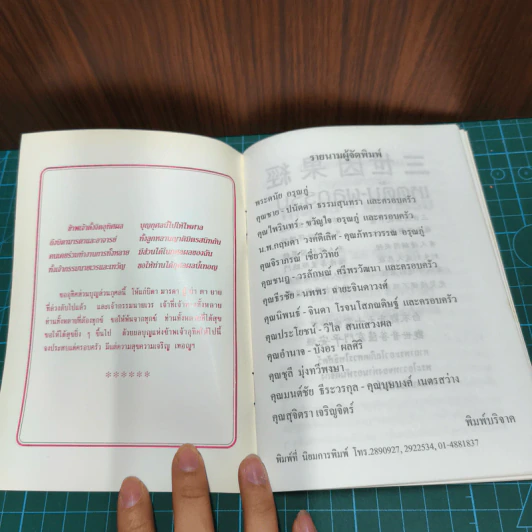 ข้าพเจ้าตั้งจิตอุทิศผล
บุญกุศลนี้ไปให้ไพศาล
ถึงบิดามารดาและอาจารย์
ทั้งลูกหลานญาติมิตรสนิทกัน
คนเคยร่วมทำงานการทั้งหลาย
มีส่วนได้ในกุศลผลของฉัน
ทั้งเจ้ากรรมนายเวรและเทวัญ
ขอให้ท่านได้กุศลผลนี้เทอญ
ขออุทิศส่วนบุญส่วนกุศลนี้ ให้แก่บิดา มารดา
ที่ล่วงลับไปแล้ว และเจ้ากรรมนายเวร เจ้าที่เจ้าทางทั้งหลาย
ท่านทั้งหลายที่ต้องทุกข์ ขอให้พ้นจากทุกข์ ท่านทั้งหลายที่ได้สุข
ขอให้ได้สุขยิ่ง ๆ ขึ้นไป ด้วยผลบุญแห่งข้าพเจ้ากุศิตได้ไปนี้
จงประสบแด่ครอบครัว มีแต่ความสุขความเจริญ เทอญฯ
รายนามผู้จัดพิมพ์
พระดนัย อรุณภู่
คุณชาย - ปนัดดา ธรรมสุนทรา และครอบครัว
คุณไพรินทร์ - ขวัญใจ อรุณภู่ และครอบครัว
น.พ.กฤษดา วงศ์ดีเลิศ - คุณภัทราวรรณ อรุณภู่
คุณจิราภรณ์ เขียววิทย์
คุณชนภู - วรลักษณ์ ศรีพรวัฒนา และครอบครัว
คุณธีรชัย - นพพร สายะจินดาวงศ์
คุณนิพนธ์ - จินดา โรจนโสภณดิษฐ์ และครอบครัว
คุณประโยชน์ - วิไล สนแสวงผล
คุณอำนาจ - บังอร ผลศิริ
คุณชุลี มุ่งทวีพงษา
คุณมนต์ชัย ธีระวรกุล - คุณบุษบงค์ เนตรสว่าง
คุณสุจิตรา เจริญจิตร์
พิมพ์บริจาค
พิมพ์ที่ นิยมการพิมพ์ โทร.2890927, 2922534, 01-4881837